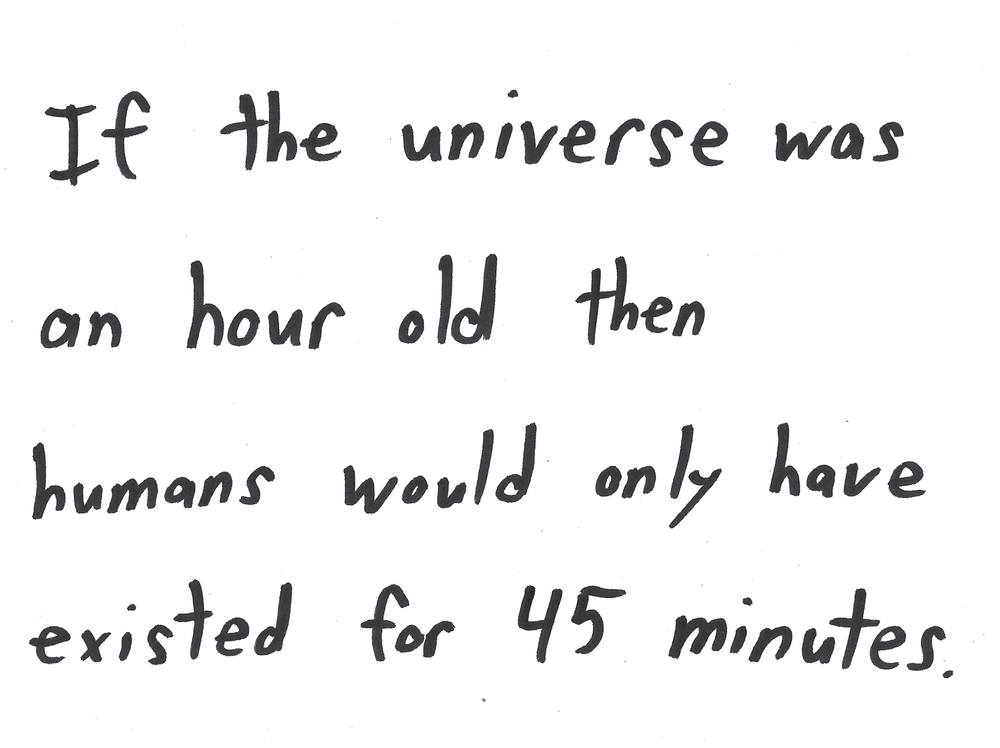 If the universe was
an hour old then
humans would only have
existed for 45 minutes.